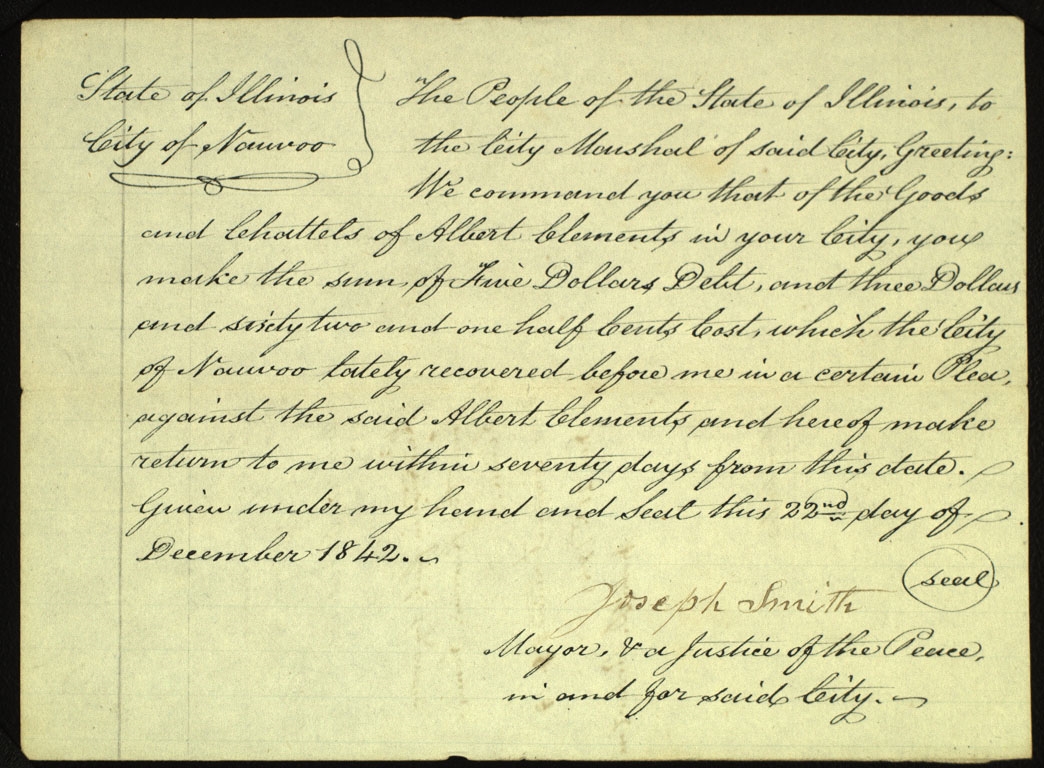 State of Illinois
City of Nauvoo
The People of the State of Illinois, to
the City Marshal of said City, Greeting:
We command you that of the Goods
and Chattels of Albert Clements in your City, you
make the sum of Five Dollars Debt, and three Dollars
and sixty two and one half Cents Cost, which the City
of Nauvoo lately recovered before me in a certain Plea,
against the said Albert Clements, and hereof make
return to me within seventy days from this date.
Given under my hand and seal this 22nd day of
December 1842.
seal
Joseph Smith
Mayor, & a Justice of the Peace,
in and for said City.